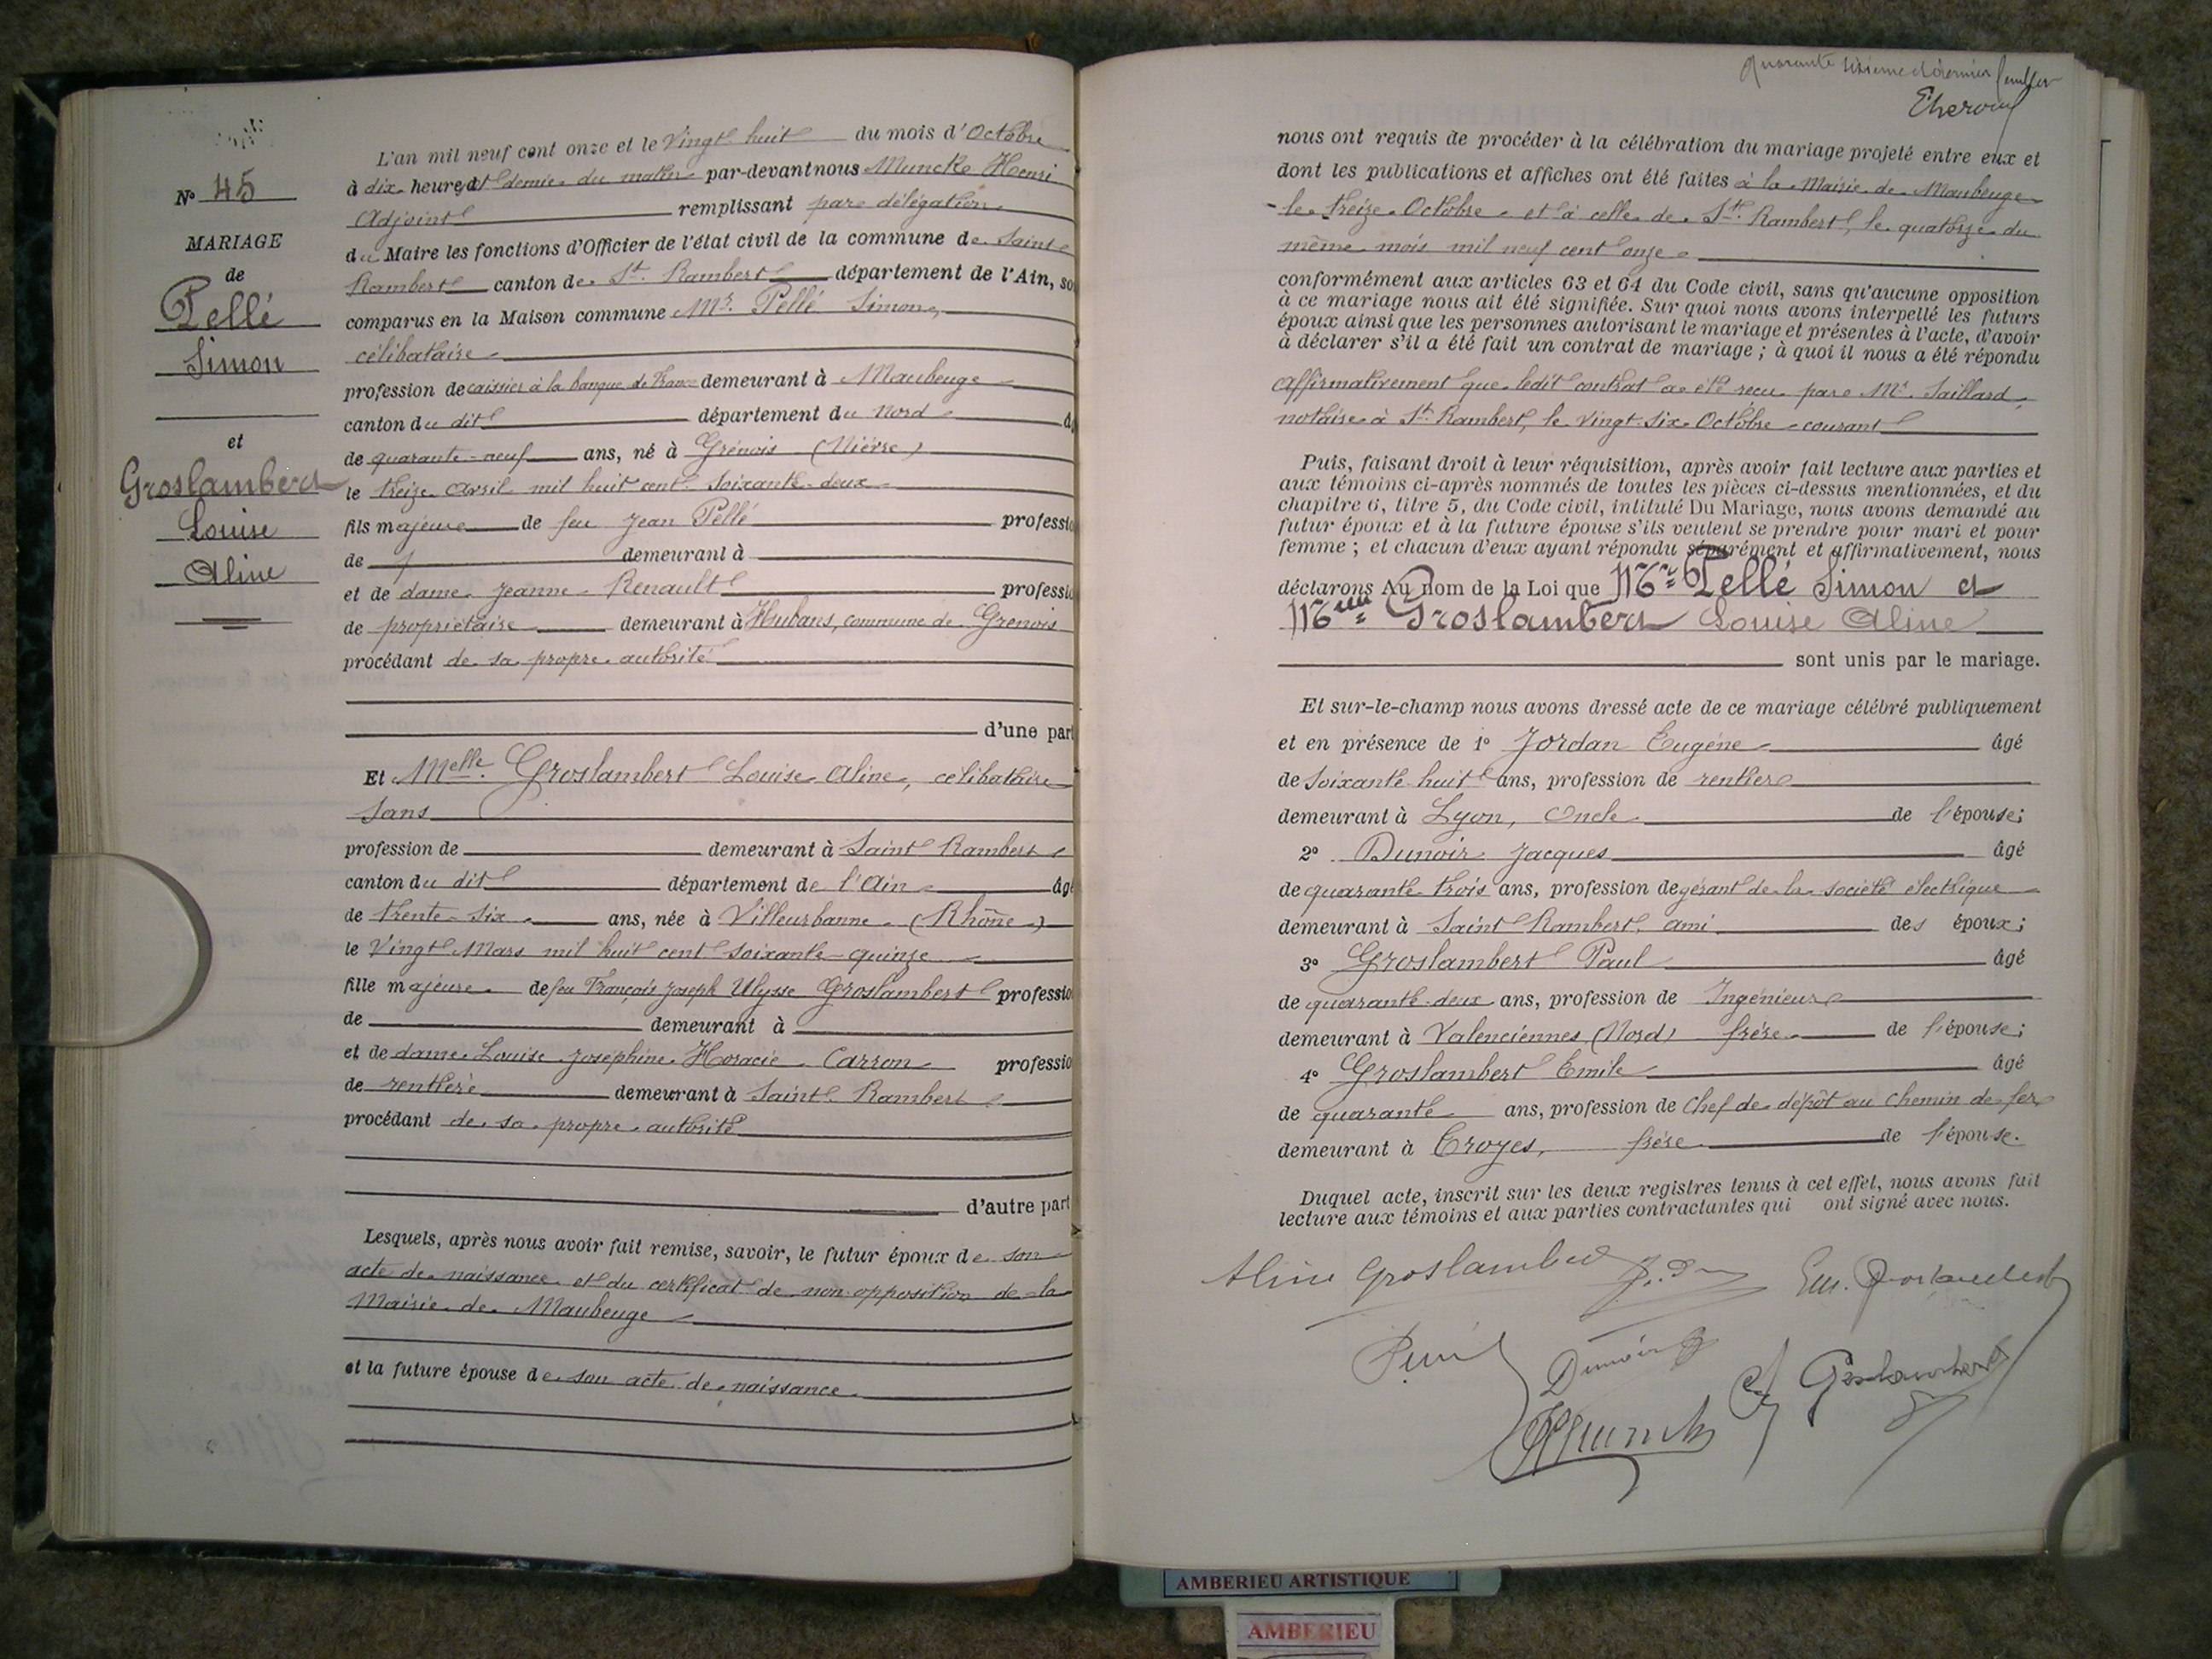 N° 45
MARIAGE
de
Pellé
Simon
et
Groslambert
Louise
Aline
L'an mil neuf cent onze et le Vingt huit du mois d'Octobre
à dix heures et demie du matin par-devant nous Muncke Henri
Adjoint remplissant par délégation
du Maire les fonctions d'Officier de l'état civil de la commune de Saint
Rambert canton de St. Rambert département de l'Ain, so
comparus en la Maison commune Mr. Pellé Simon,
célibataire
profession de caissier à la banque de France demeurant à Maubeuge
canton du dit département du Nord âg
de quarante-neuf ans, né à Grénois (Nièvre)
le treize Avril mil huit cent soixante-deux
fils majeur de feu Jean Pellé professio
de demeurant à
et de dame Jeanne Renault professio
de propriétaire demeurant à Hubans, commune de Grenois
procédant de sa propre autorité
d'une part
Et Melle. Groslambert Louise Aline, célibataire
Sans
profession de demeurant à Saint Rambert
canton du dit département de l'Ain âgé
de trente-six ans, née à Villeurbanne (Rhône)
le Vingt Mars mil huit cent soixante-quinze
fille majeure de feu François Joseph Ulysse Groslambert professio
de demeurant à
et de dame Louise Joséphine Horacie Carron professio
de rentière demeurant à Saint Rambert
procédant de sa propre autorité
d'autre part
Lesquels, après nous avoir fait remise, savoir, le futur époux de son
acte de naissance et du certificat de non opposition de la
Mairie de Maubeuge
et la future épouse de son acte de naissance
Quarante sixième et dernier feuillet
nous ont requis de procéder à la célébration du mariage projeté entre eux et
dont les publications et affiches ont été faites à la Mairie de Maubeuge
le treize Octobre et à celle de St. Rambert, le quatorze du
même mois mil neuf cent onze
conformément aux articles 63 et 64 du Code civil, sans qu'aucune opposition
à ce mariage nous ait été signifiée. Sur quoi nous avons interpellé les futurs
époux ainsi que les personnes autorisant le mariage et présentes à l'acte, d'avoir
à déclarer s'il a été fait un contrat de mariage ; à quoi il nous a été répondu
affirmativement que ledit contrat a été reçu par Me. Saillard,
notaire à St. Rambert, le vingt-six Octobre courant
Puis, faisant droit à leur réquisition, après avoir fait lecture aux parties et
aux témoins ci-après nommés de toutes les pièces ci-dessus mentionnées, et du
chapitre 6, titre 5, du Code civil, intitulé Du Mariage, nous avons demandé au
futur époux et à la future épouse s'ils veulent se prendre pour mari et pour
femme ; et chacun d'eux ayant répondu séparément et affirmativement, nous
déclarons Au nom de la Loi que Mr. Pellé Simon et
Melle Groslambert Louise Aline
sont unis par le mariage.
Et sur-le-champ nous avons dressé acte de ce mariage célébré publiquement
et en présence de 1° Jordan Eugène âgé
de soixante huit ans, profession de rentier
demeurant à Lyon, Oncle de l'épouse;
2° Dunoir Jacques âgé
de quarante trois ans, profession de gérant de la société électrique
demeurant à Saint Rambert, ami des époux;
3° Groslambert Paul âgé
de quarante-deux ans, profession de Ingénieur
demeurant à Valenciennes (Nord) frère de l'épouse;
4° Groslambert Emile âgé
de quarante ans, profession de Chef de dépôt au Chemin de fer
demeurant à Troyes, frère de l'épouse.
Duquel acte, inscrit sur les deux registres tenus à cet effet, nous avons fait
lecture aux témoins et aux parties contractantes qui ont signé avec nous.
Aline Groslambert Em. Groslambert
Dunoir Groslambert
HMuncke
AMBERIEU ARTISTIQUE
AMBERIEU